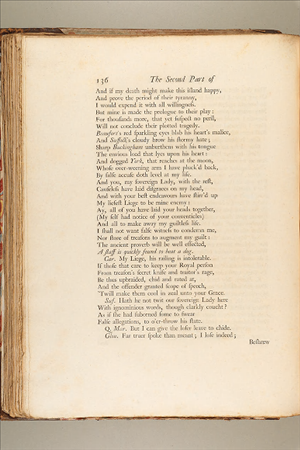 136 The Second Part of
And if my death might make this island happy,
And prove the period of their tyranny,
I would expend it with all willingness.
But mine is made the prologue to their play:
For thousands more, that yet suspect no peril,
Will not conclude their plotted tragedy.
Beaufort's red sparkling eyes blab his heart's malice,
And Suffolk's cloudy brow his stormy hate;
Sharp Buckingham unburthens with his tongue
The envious load that lyes upon his heart:
And dogged York, that reaches at the moon,
Whose over-weening arm I have pluck'd back,
By false accuse doth level at my life.
And you, my sovereign Lady, with the rest,
Causeless have laid disgraces on my head,
And with your best endeavours have stirr'd up
My liefest Liege to be mine enemy:
Ay, all of you have laid your heads together,
(My self had notice of your conventicles)
And all to make away my guiltless life.
I shall not want false witness to condemn me,
Nor store of treasons to augment my guilt:
The ancient proverb will be well effected,
A staff is quickly found to beat a dog.
Car. My Liege, his railing is intolerable.
If those that care to keep your Royal person
From treason's secret knife and traitor's rage,
Be thus upbraided, chid and rated at,
And the offender granted scope of speech,
'Twill make them cool in zeal unto your Grace.
Suf. Hath he not twit our sovereign Lady here
With ignominious words, though clarkly coucht?
As if she had suborned some to swear
False allegations, to o'er-throw his state.
Q. Mar. But I can give the loser leave to chide.
Glou. Far truer spoke than meant; I lose indeed;
Beshrew